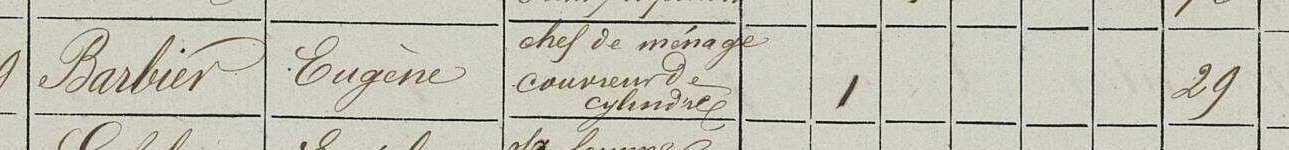 Barbier Eugène chef de ménage
couvreur de
cylindre 1 29